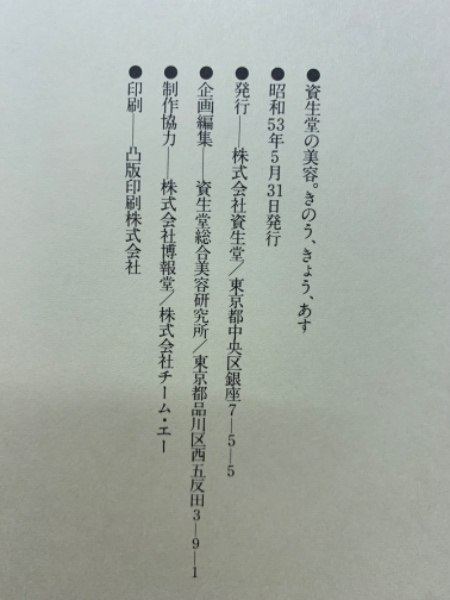 ●資生堂の美容。きのう、きょう、あす
●昭和53年5月31日発行
●発行──株式会社資生堂／東京都中央区銀座7─5─5
●企画編集──資生堂総合美容研究所／東京都品川区西五反田3─9─1
●制作協力──株式会社博報堂／株式会社チーム・エー
●印刷──凸版印刷株式会社